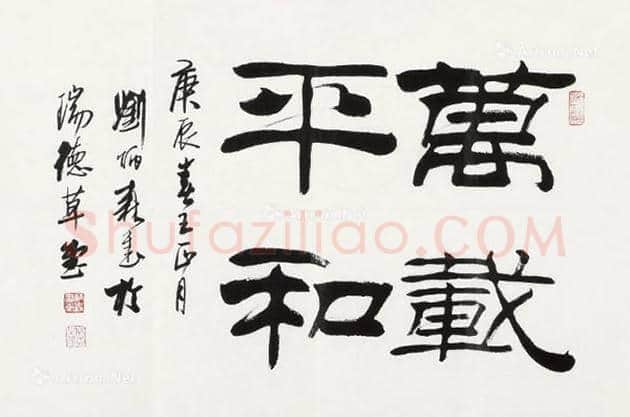 萬載
平和
庚辰春王正月
劉炳森書於
瑞德草堂
Shufaziliao.COM
Artron.Net
Artron.Net
Artron.Net